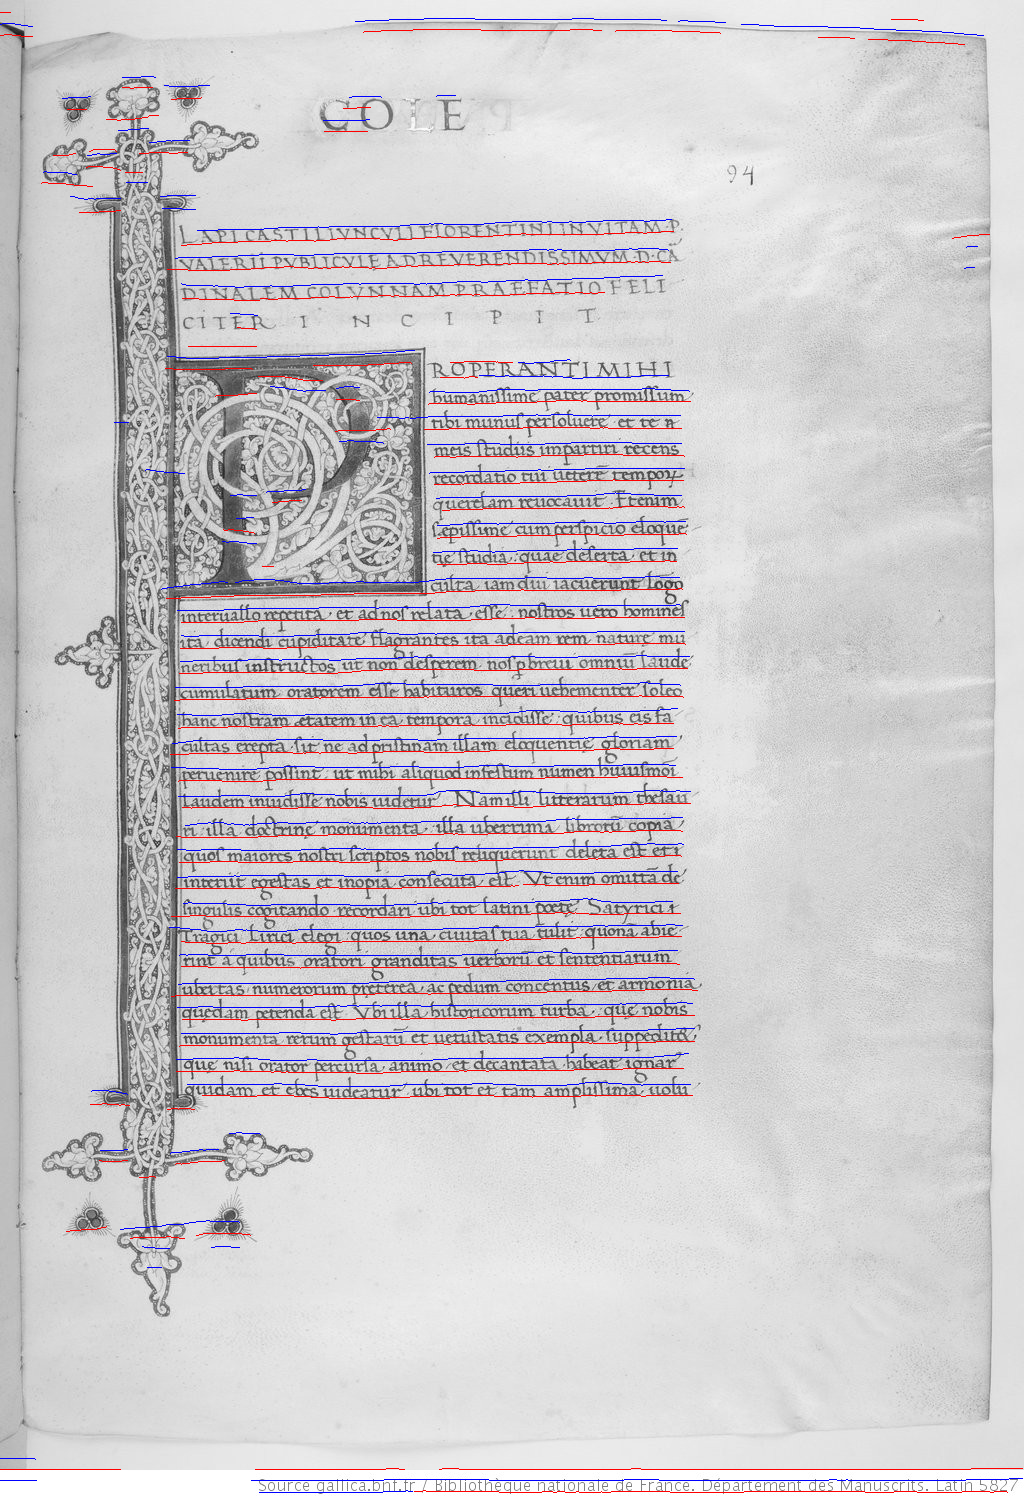 COLE
94
LAPI CASTELIVNCVLI FLORENTINI IN VITAM · P ·
VALERII PVBLICVLĘ AD REVERENDISSIMVM · D · CĀ
DINALEM COLVNNAM PRAEFATIO FELI
CITER INCIPIT
PROPERANTI MIHI
humanissime pater promissum
tibi munus persoluere, et te a
meis studiis impartiri recens
recordatio tui
querelam reuocauit. Etenim
sępissime cum perspicio eloquē
tię studia, quae deserta, et in
culta, iam diu iacuerunt lōgo
interuallo repetita, et ad nos relata esse, nostros uero homines
ita dicendi cupiditate flagrantes ita ad eam rem nature mu
neribus instructos ut non desperem nos breui omniū laude
cumulatum oratorem esse habituros queri uehementer soleo
hanc nostram ętatem in ea tempora incidisse, quibus eis fa
cultas erepta sit ne ad pristinam illam eloquentię gloriam
peruenire possint, ut mihi aliquod infestum numen huiusmōi
laudem inuidisse nobis uidetur. Nam illi litterarum thesau
ri illa doctrinę monumenta, illa uberrima librorū copia,
quos maiores nostri scriptos nobis reliquerunt deleta est et i
interiit egestas et inopia consecuta est. Vt enim omittā de
singulis cogitando recordari ubi tot latini poetę Satyrici
Tragici Lirici elegi quos una ciuitas tua tulit quona abie
rint a quibus oratori granditas uerborū et sententiarum
ubertas numerorum pręterea, ac pedum concentus, et armonia
quędam petenda est Vbi illa historicorum turba, quę nobis
monumenta rerum gestarū et uetustatis exempla, suppeditet,
que nisi orator percursa, animo, et decantata habeat ignar
quidam et ebes uideatur, ubi tot et tam amplissima, uolu
Source gallica.bnf.fr / Bibliothèque nationale de France. Département des Manuscrits. Latin 5827